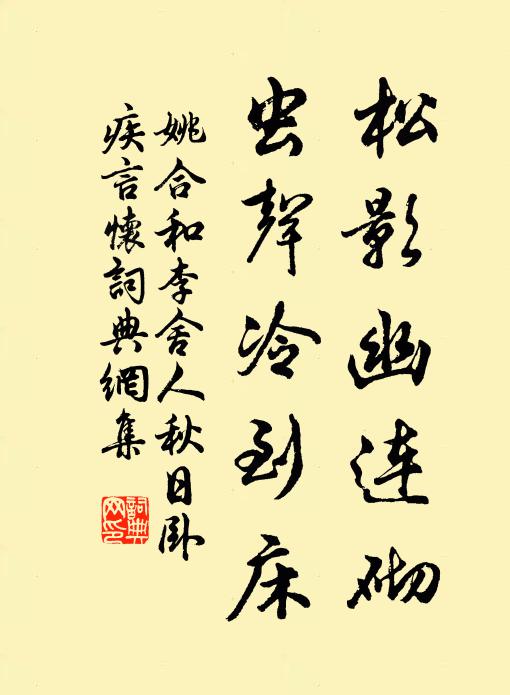 松影幽连砌
虫声冷到床
姚合和李舍人秋日卧
疾言懷詞典網集
詞典
网印